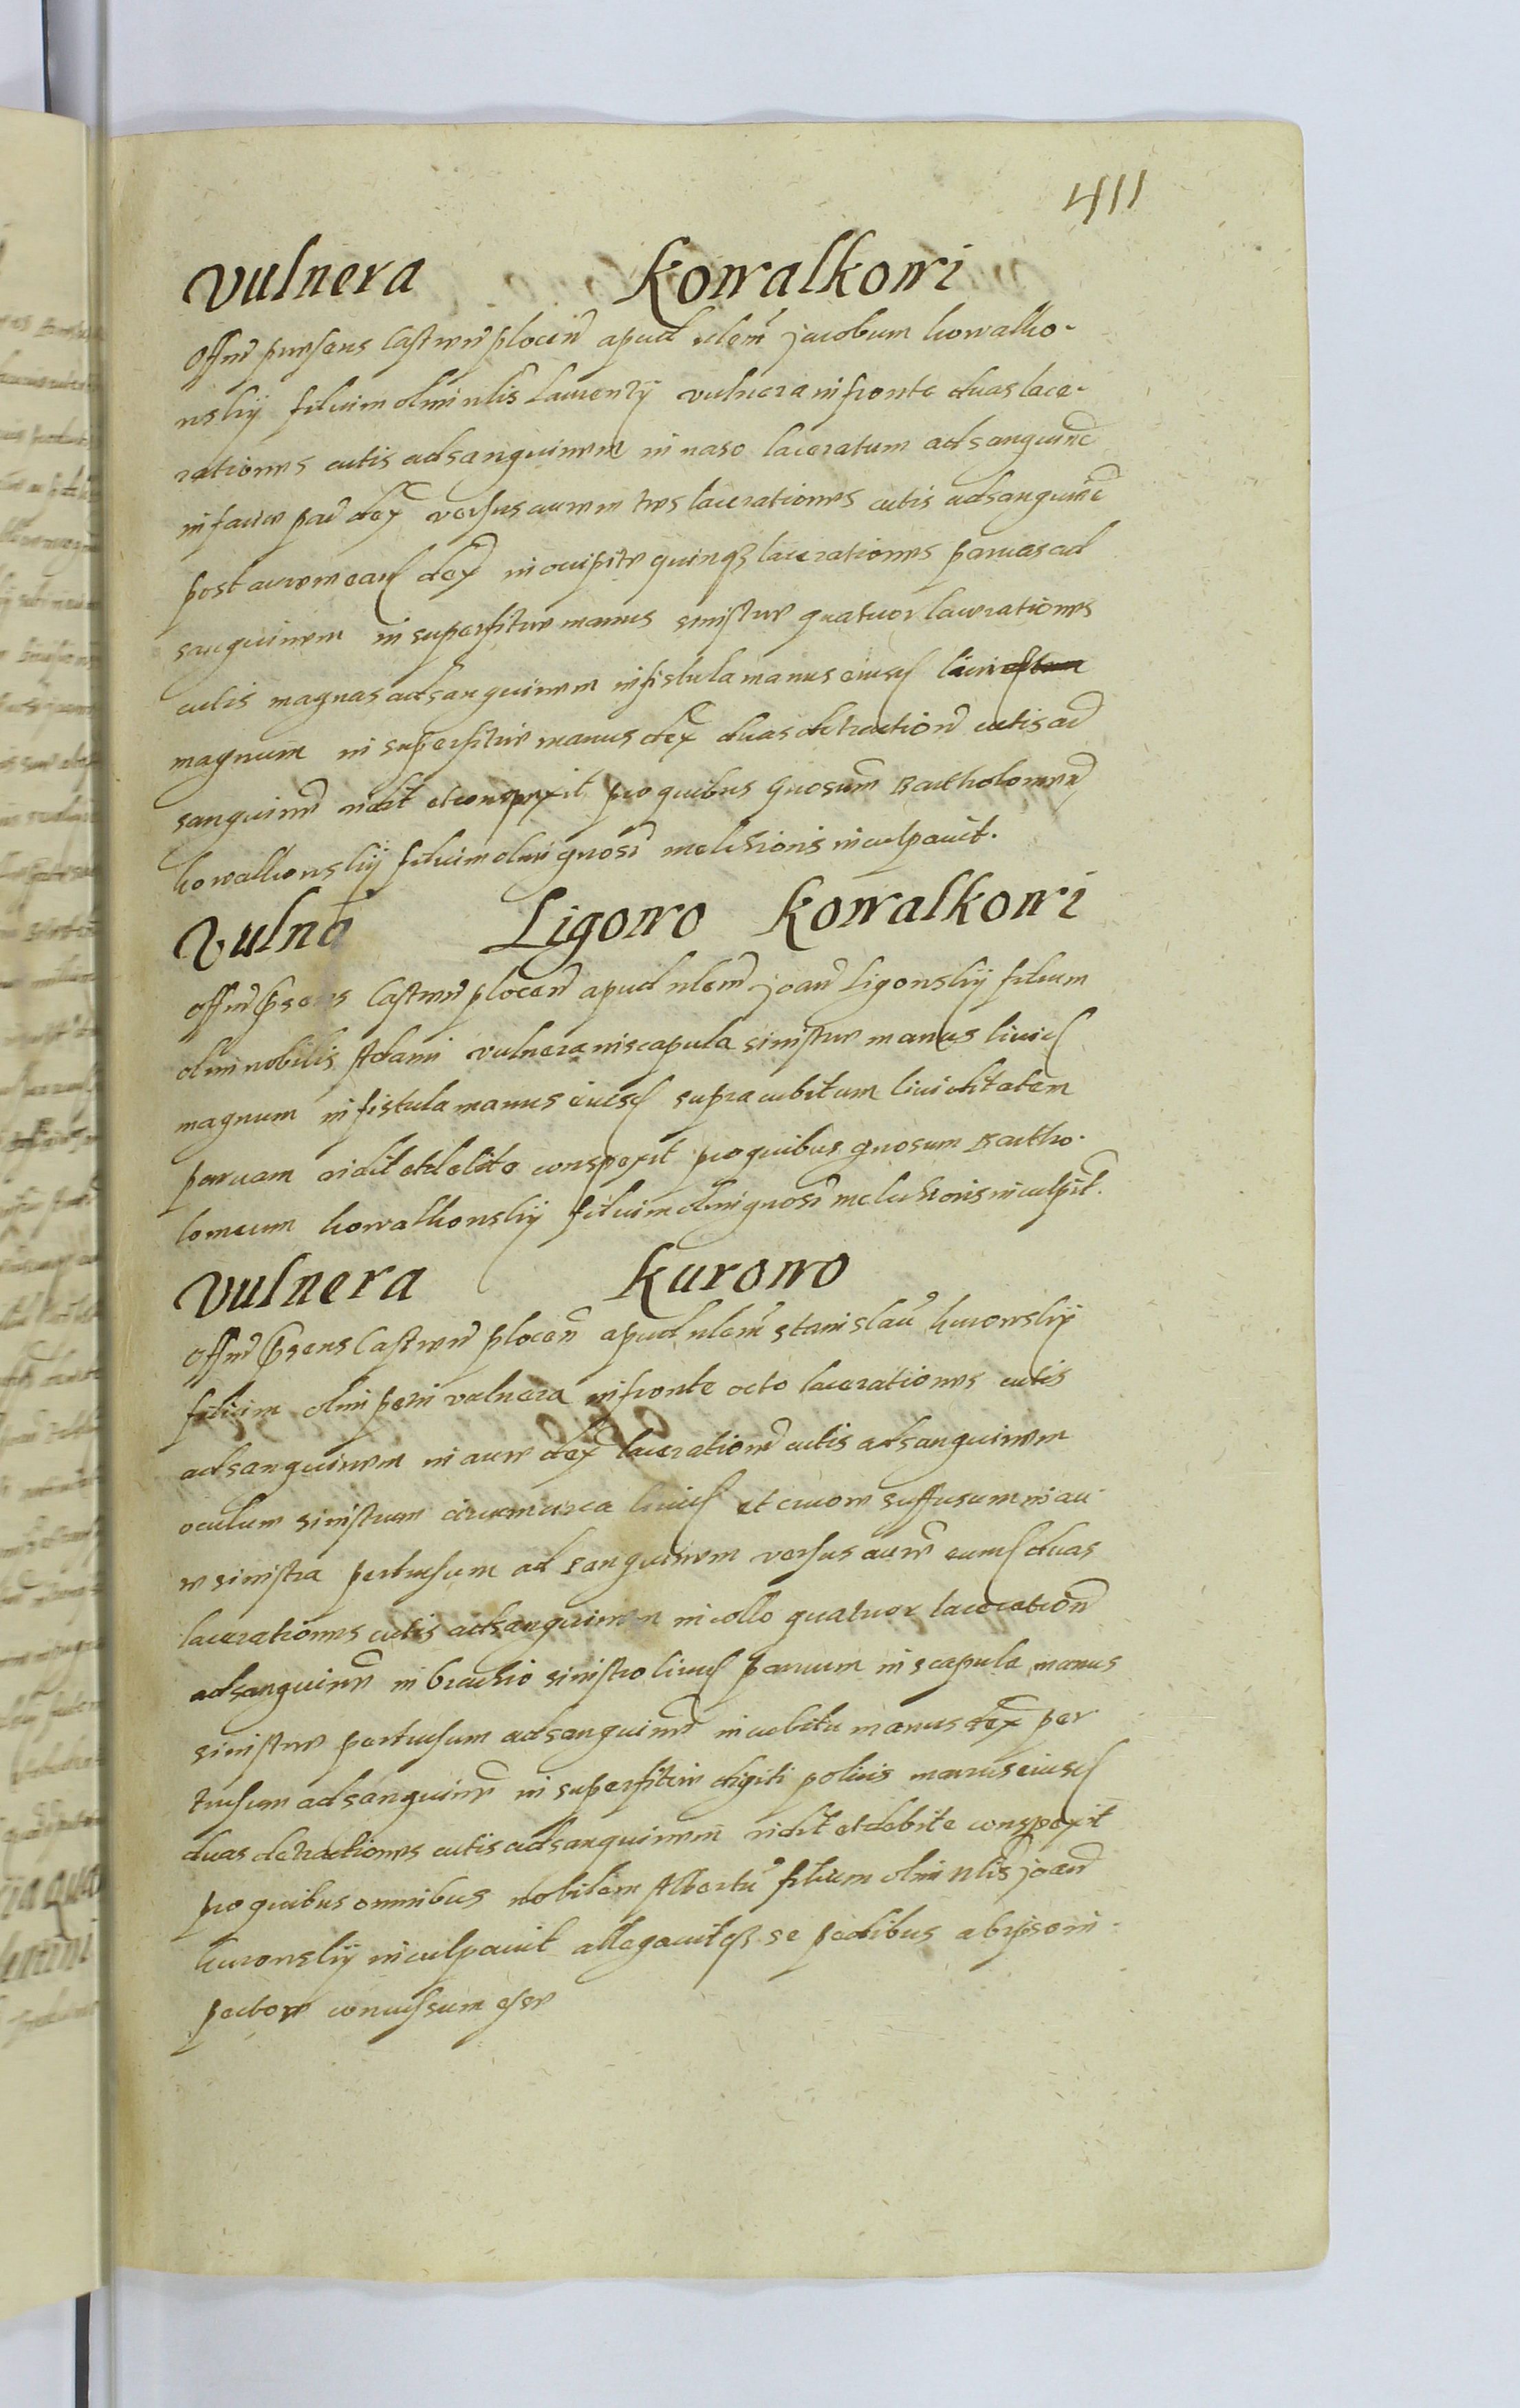 411
Vulnera Kowalkowi
Offm̃ præsens Castren̄ plocen̄ apud nlem̃ jacobum kowalko-
wskij filium olim nlis Laurenty vulnera in fronte duas lace-
rationes cutis ad sanguinem in naso laceratum ad sanguinē
in facie dex versus aurem tres lacerationes cutis ad sanguinē
post aurem eand dex in occipite quinq lacerationes paruas ad
sanguinem in superfitie manus sinistre quatuor lacerationes
cutis magnas ad sanguinem in fistula manus eiusd liuid
magnum in superfitie manus dex duas detraction̄ cutis ad
sanguinē vidit et conspexit pro quibus gnosum Bartholomeū
kowalkowskij filium olim gnosi melchioris inculpauit.
Vulnā Ligowo Kowalkowi
Offm̃ Psens Castren̄ plocen̄ apud nlem̃ joan̄ Ligowskij filium
olim nobilis Adami vulnera in scapula sinistre manus liuid
magnum in fistula manus eiusd supra cubitum liuiditatem
paruam vidit et debite conspexit pro quibus gnosum Bartho-
lomeum kowalkowskij filium olim gnosi melchioris inculpit.
Vulnera Kurowo
Offm̃ Psens Castren̄ plocen̄ apud nlem̃ stanislaū kurowskij
filium olim petri vulnera in fronte octo lacerationes cutis
ad sanguinem in aure dex lacerationē cutis ad sanguinem
oculum sinistrum circumcirca liuid et cruore suffusum in au-
re sinistra pertusum ad sanguinem versus aurē eand duas
lacerationes cutis ad sanguinem in collo quatuor laceration̄
ad sanguinē in brachio sinistro liuid paruum in scapula manus
sinistre pertusum ad sanguinē in cubitu manus dex per
tusum ad sanguinē in superfitie digiti polius manus eiusd
duas detractiones cutis ad sanguinem vidit et debite conspexit
pro quibus omnibus nobilem Albertū filium olim nlis joan̄
kurowskij inculpauit allegauitq se pedibus ab ipso in
pectore concussum esse